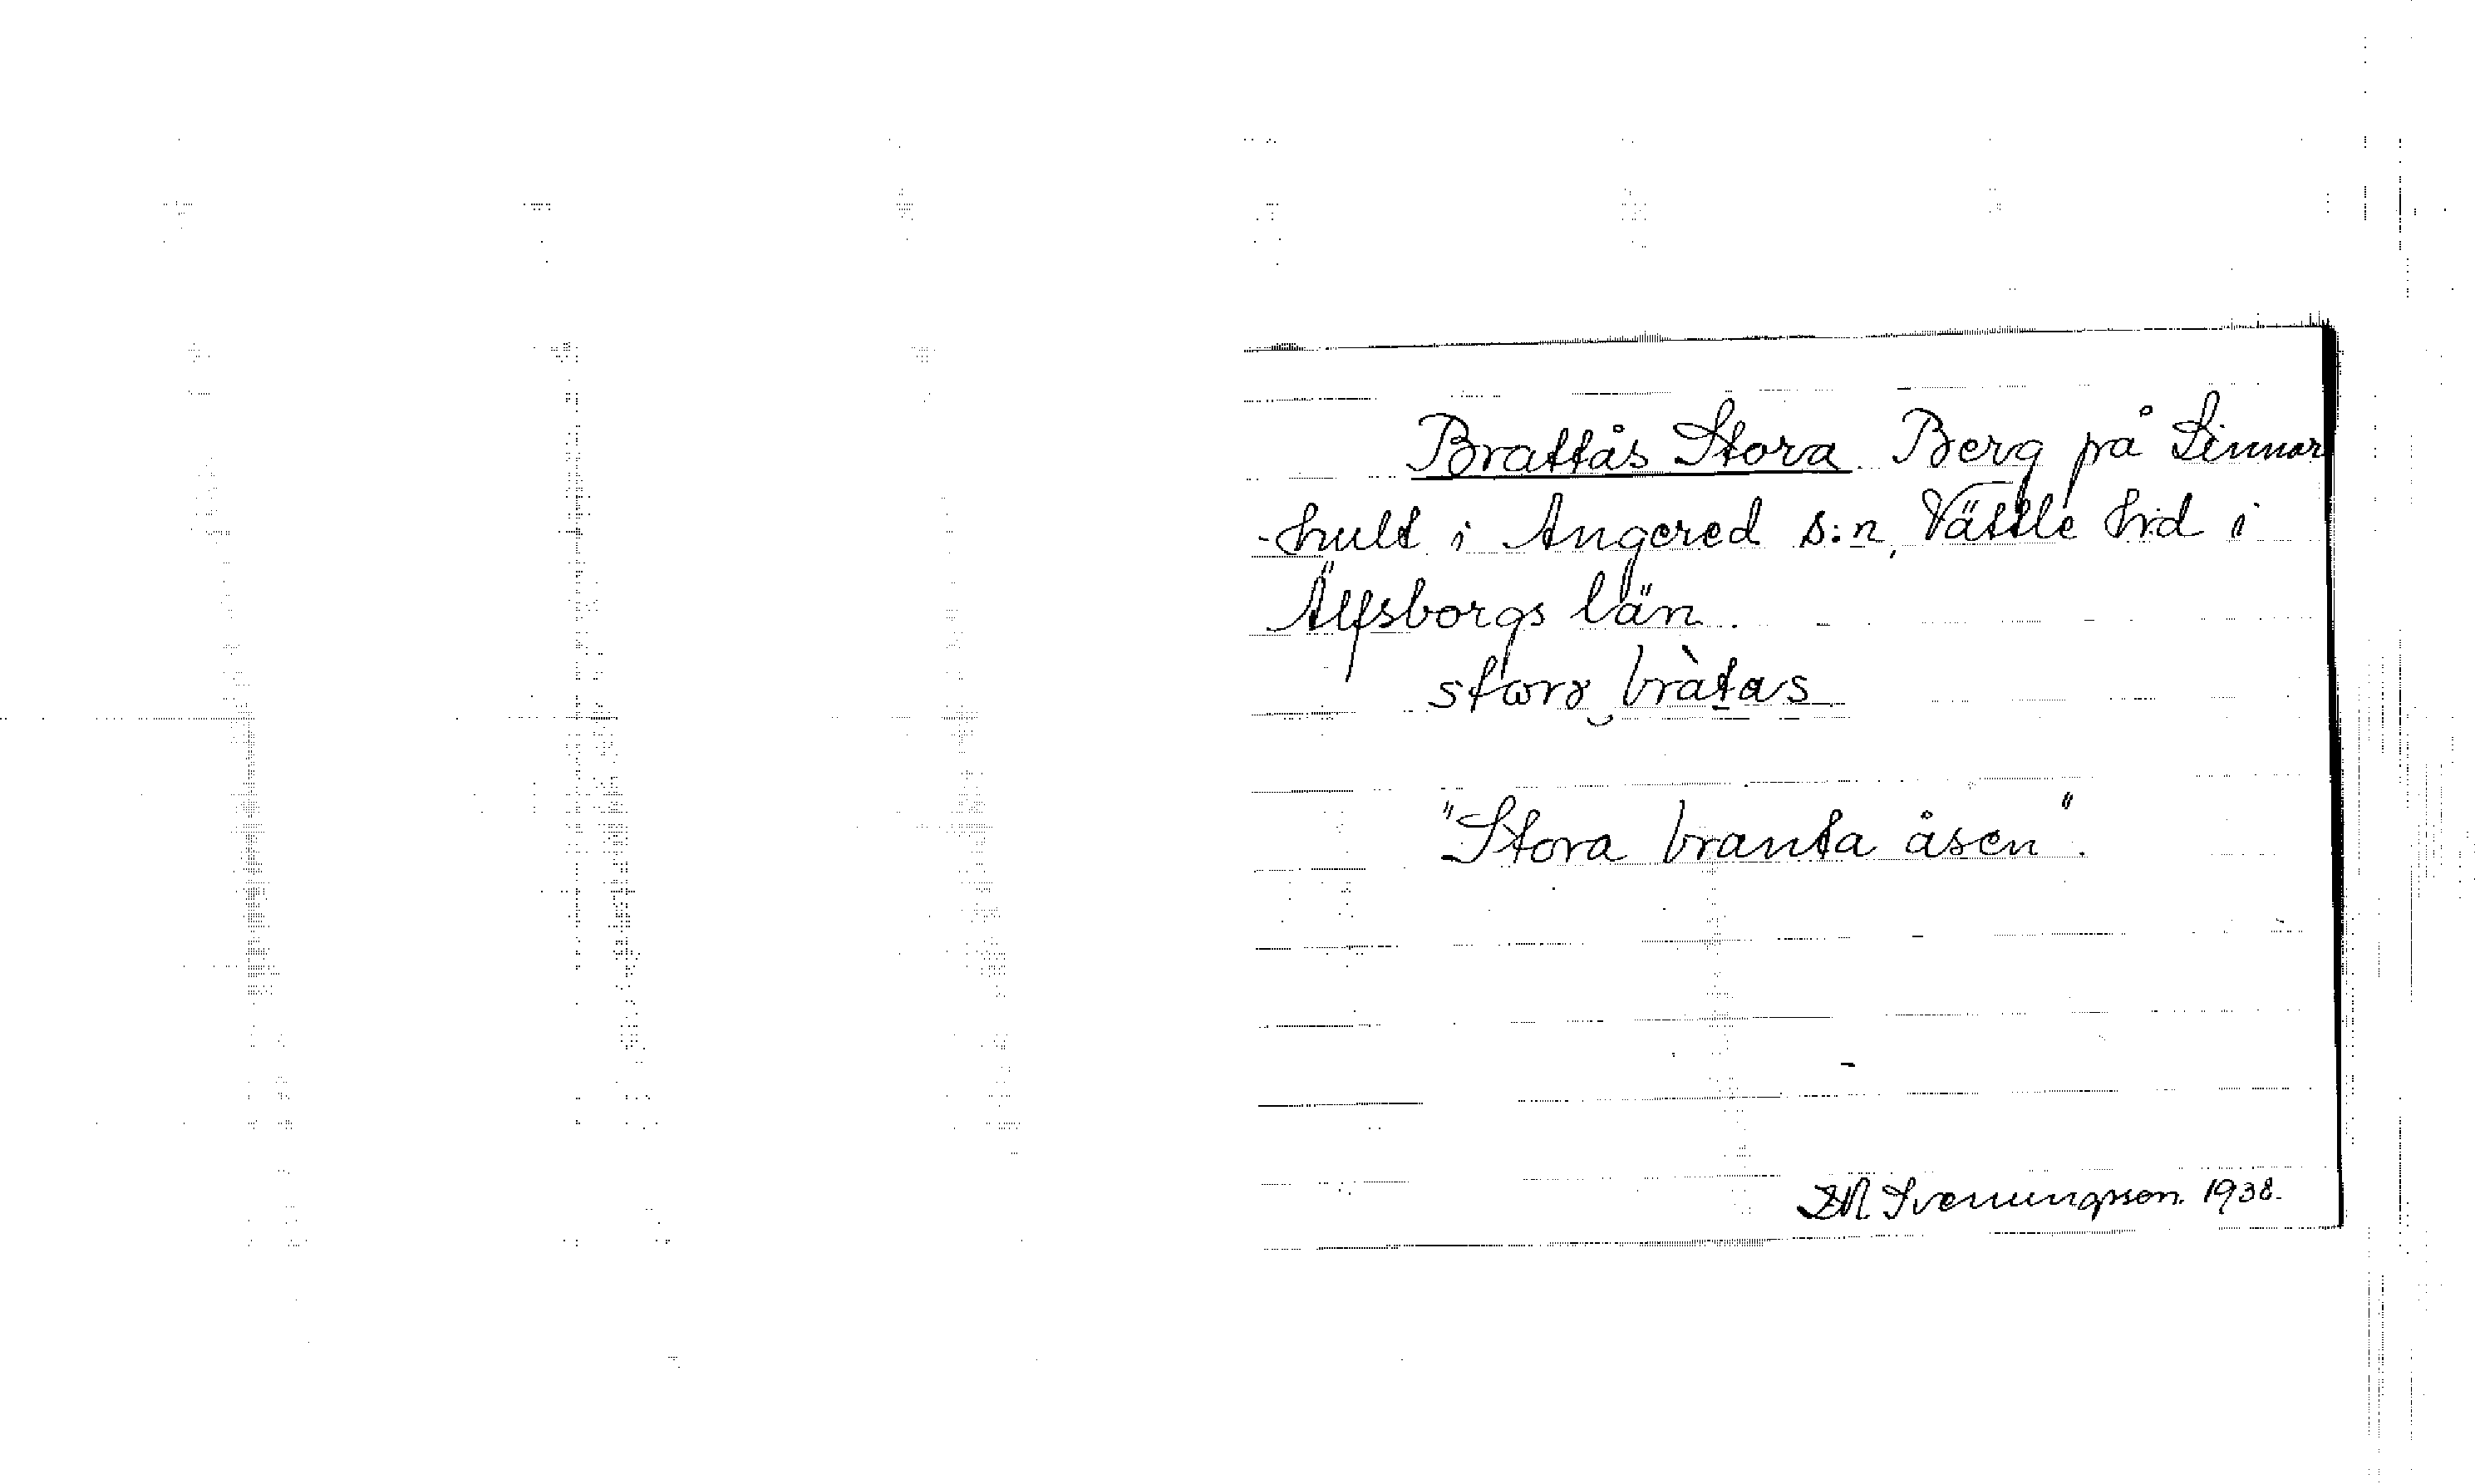 Brattås Stora Berg på Linnar
-hult i Angered s:n, Vättle hd i
Älfsborgs län.
"Stora branta åsen".
Svenungsson 1938.